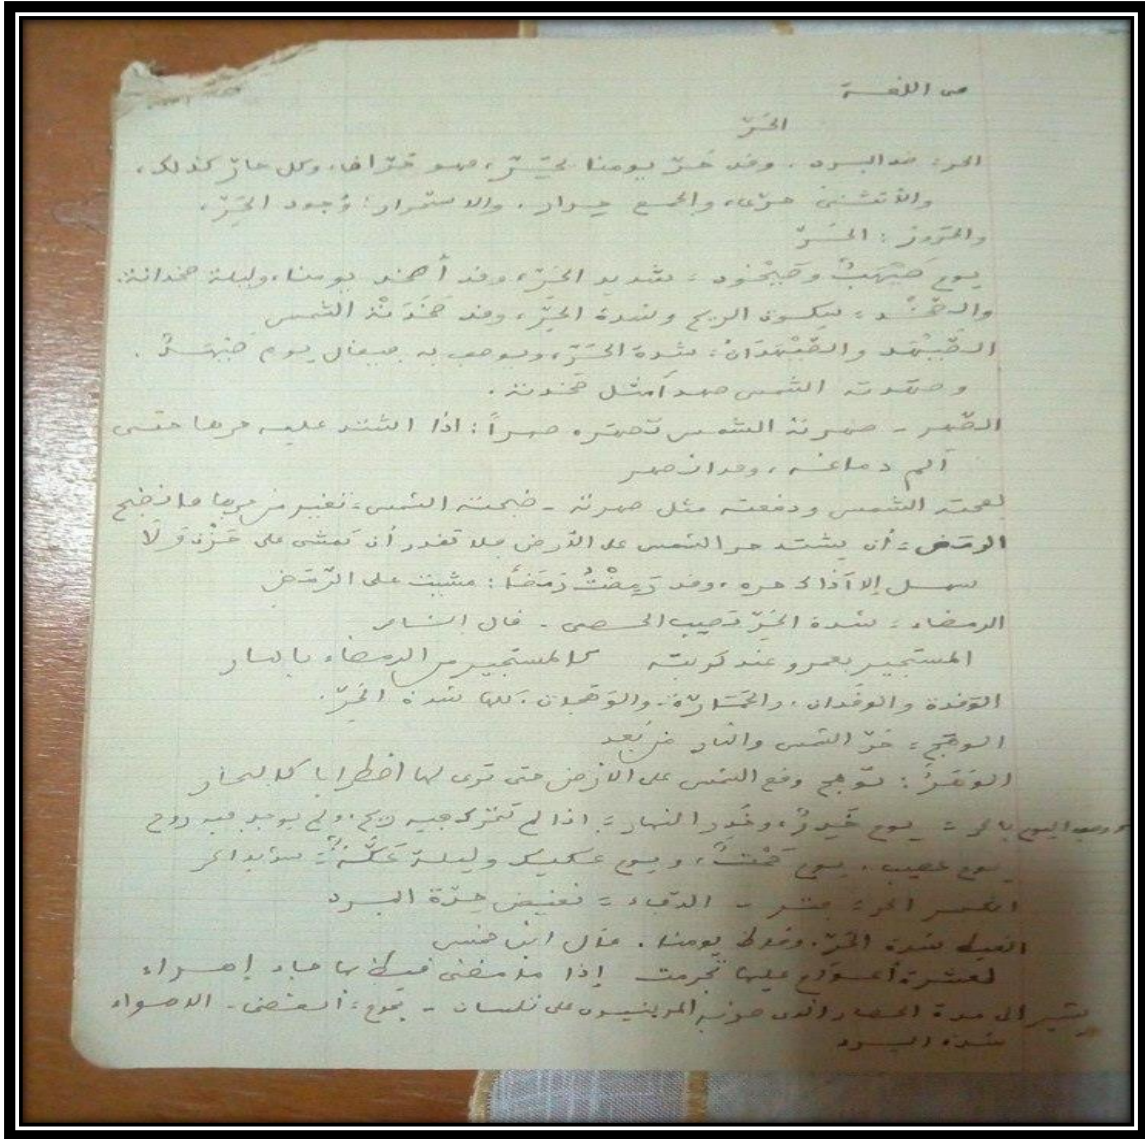 من اللغة
الحَرّ
الحر: ضد البرد. وقد حَرّ يومنا يَحَرّ، فهو حَرّان، وكل حارّ كذلك،
والأنثى حرّى، والجمع حرار. والاستحرار: وُجود الحَرّ،
والحَرور: الحَرّ
يوم صَيْهَبٌ وصَيْخود: شديد الحَرّ، وقد أصخد يومنا، وليلة صخدانة.
والصّخْد: سكون الريح وشدة الحَرّ، وقد صَخَدَتْه الشمس
الصَّيْهَد والصَّيْهَدَانُ: شدة الحَرّ، ويوصف به فيقال يوم صَيْهَدٌ.
وصهَدته الشمس صهداً مثل صخدته.
الصَّهر - صهرته الشمس تصهره صهراً: اذا اشتد عليه حرها حتى
آلم دماغه، وقد انصهر
لفحته الشمس ودفعته مثل صهرته - ضبحته الشمس: تغير من حرها
الرمَض: أن يشتد حر الشمس على الأرض فلا تقدر أن تمشي على حَزْن وَلَا
سهل إلا آذاك حره، وقد رَمِضْتُ رَمَضاً: مشيت على الرَّمَض
الرمضاء: شدة الحَرّ تصيب الحصى - قال الشاعر
المستجير بعمرو عند كربته كالمستجير من الرمضاء بالنار
الوَقْدة والوقدان. والحَمَارّة. والوَهَجان. كلها شدة الحَرّ.
الوهَج: حَرّ الشمس والنار من بَعد
الوَغْرُ: تَوهج وقع الشمس على الأرض حتى ترى لها اضطرابا كالبخار
يوصف اليوم بالحر: يوم خَدِرٌ، وخَدِر النهار: اذا لم تتحرك فيه ريح، ولم يوجد فيه روح
يوم عصيب. يوم حَمْتٌ، ويوم عكيك وليلة عَكَّةٌ: شديد الحر
انكسر الحر: فتر - الدفء: نقيض حِدّة البرد
القيظ شدة الحَرّ. وقد قاظ يومنا. قال ابن خميس
لعشرة أعوام عليها تجرمت إذا ما مضى قيظ بها جاء إهراء
يشير الى مدة الحصار الذي ضربه المرينيون على تلمسان - تجرم: انقضى - الاهراء
شدة البرد